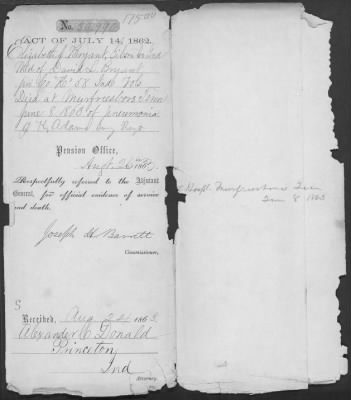 No. 36,996
ACT OF JULY 14, 1862.
Elizabeth Bryant,
Wid of David L. Bryant
Co. K. 58 Ind. Vols
Died at Murfreesboro Tenn
June 8 1863 of pneumonia
Pension Office,
Augt. 26th 1863
Respectfully referred to the Adjutant
General, for official evidence of service
and death.
Joseph H. Barrett
Commissioner.
Received, Aug 24 1863
Alexander C Donald
Princeton,
Ind
Attorney.
Hospl. Murfreesboro Ten
8 1863